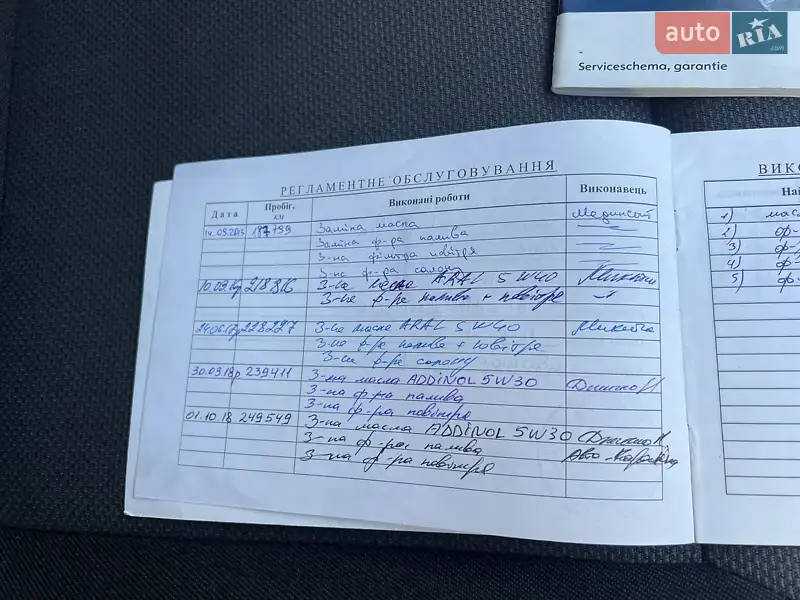 auto RIA.com
Serviceschema, garantie
РЕГЛАМЕНТНЕ ОБСЛУГОВУВАННЯ
Дата Пробіг, км Виконані роботи Виконавець
14.09.2013 Заміна масла
Заміна ф-ра палива
З-на фільтра повітря
З-на ф-ра салону
218816 З-на масла ARAL 5W40
З-на ф-ра палива + повітря
24.06.17р 228227 З-на масла ARAL 5W40 Микита
З-на ф-ра палива + повітря
З-на ф-ра салону
30.03.18р 239411 З-на масла ADDINOL 5W30
З-на ф-ра палива
З-на ф-ра повітря
01.10.18 249549 З-на масла ADDINOL 5W30
З-на ф-ра палива Авто
З-на ф-ра повітря
ВИКО
На
1) мас
2) ф-
3) ф-
4) ф-
5) ф-